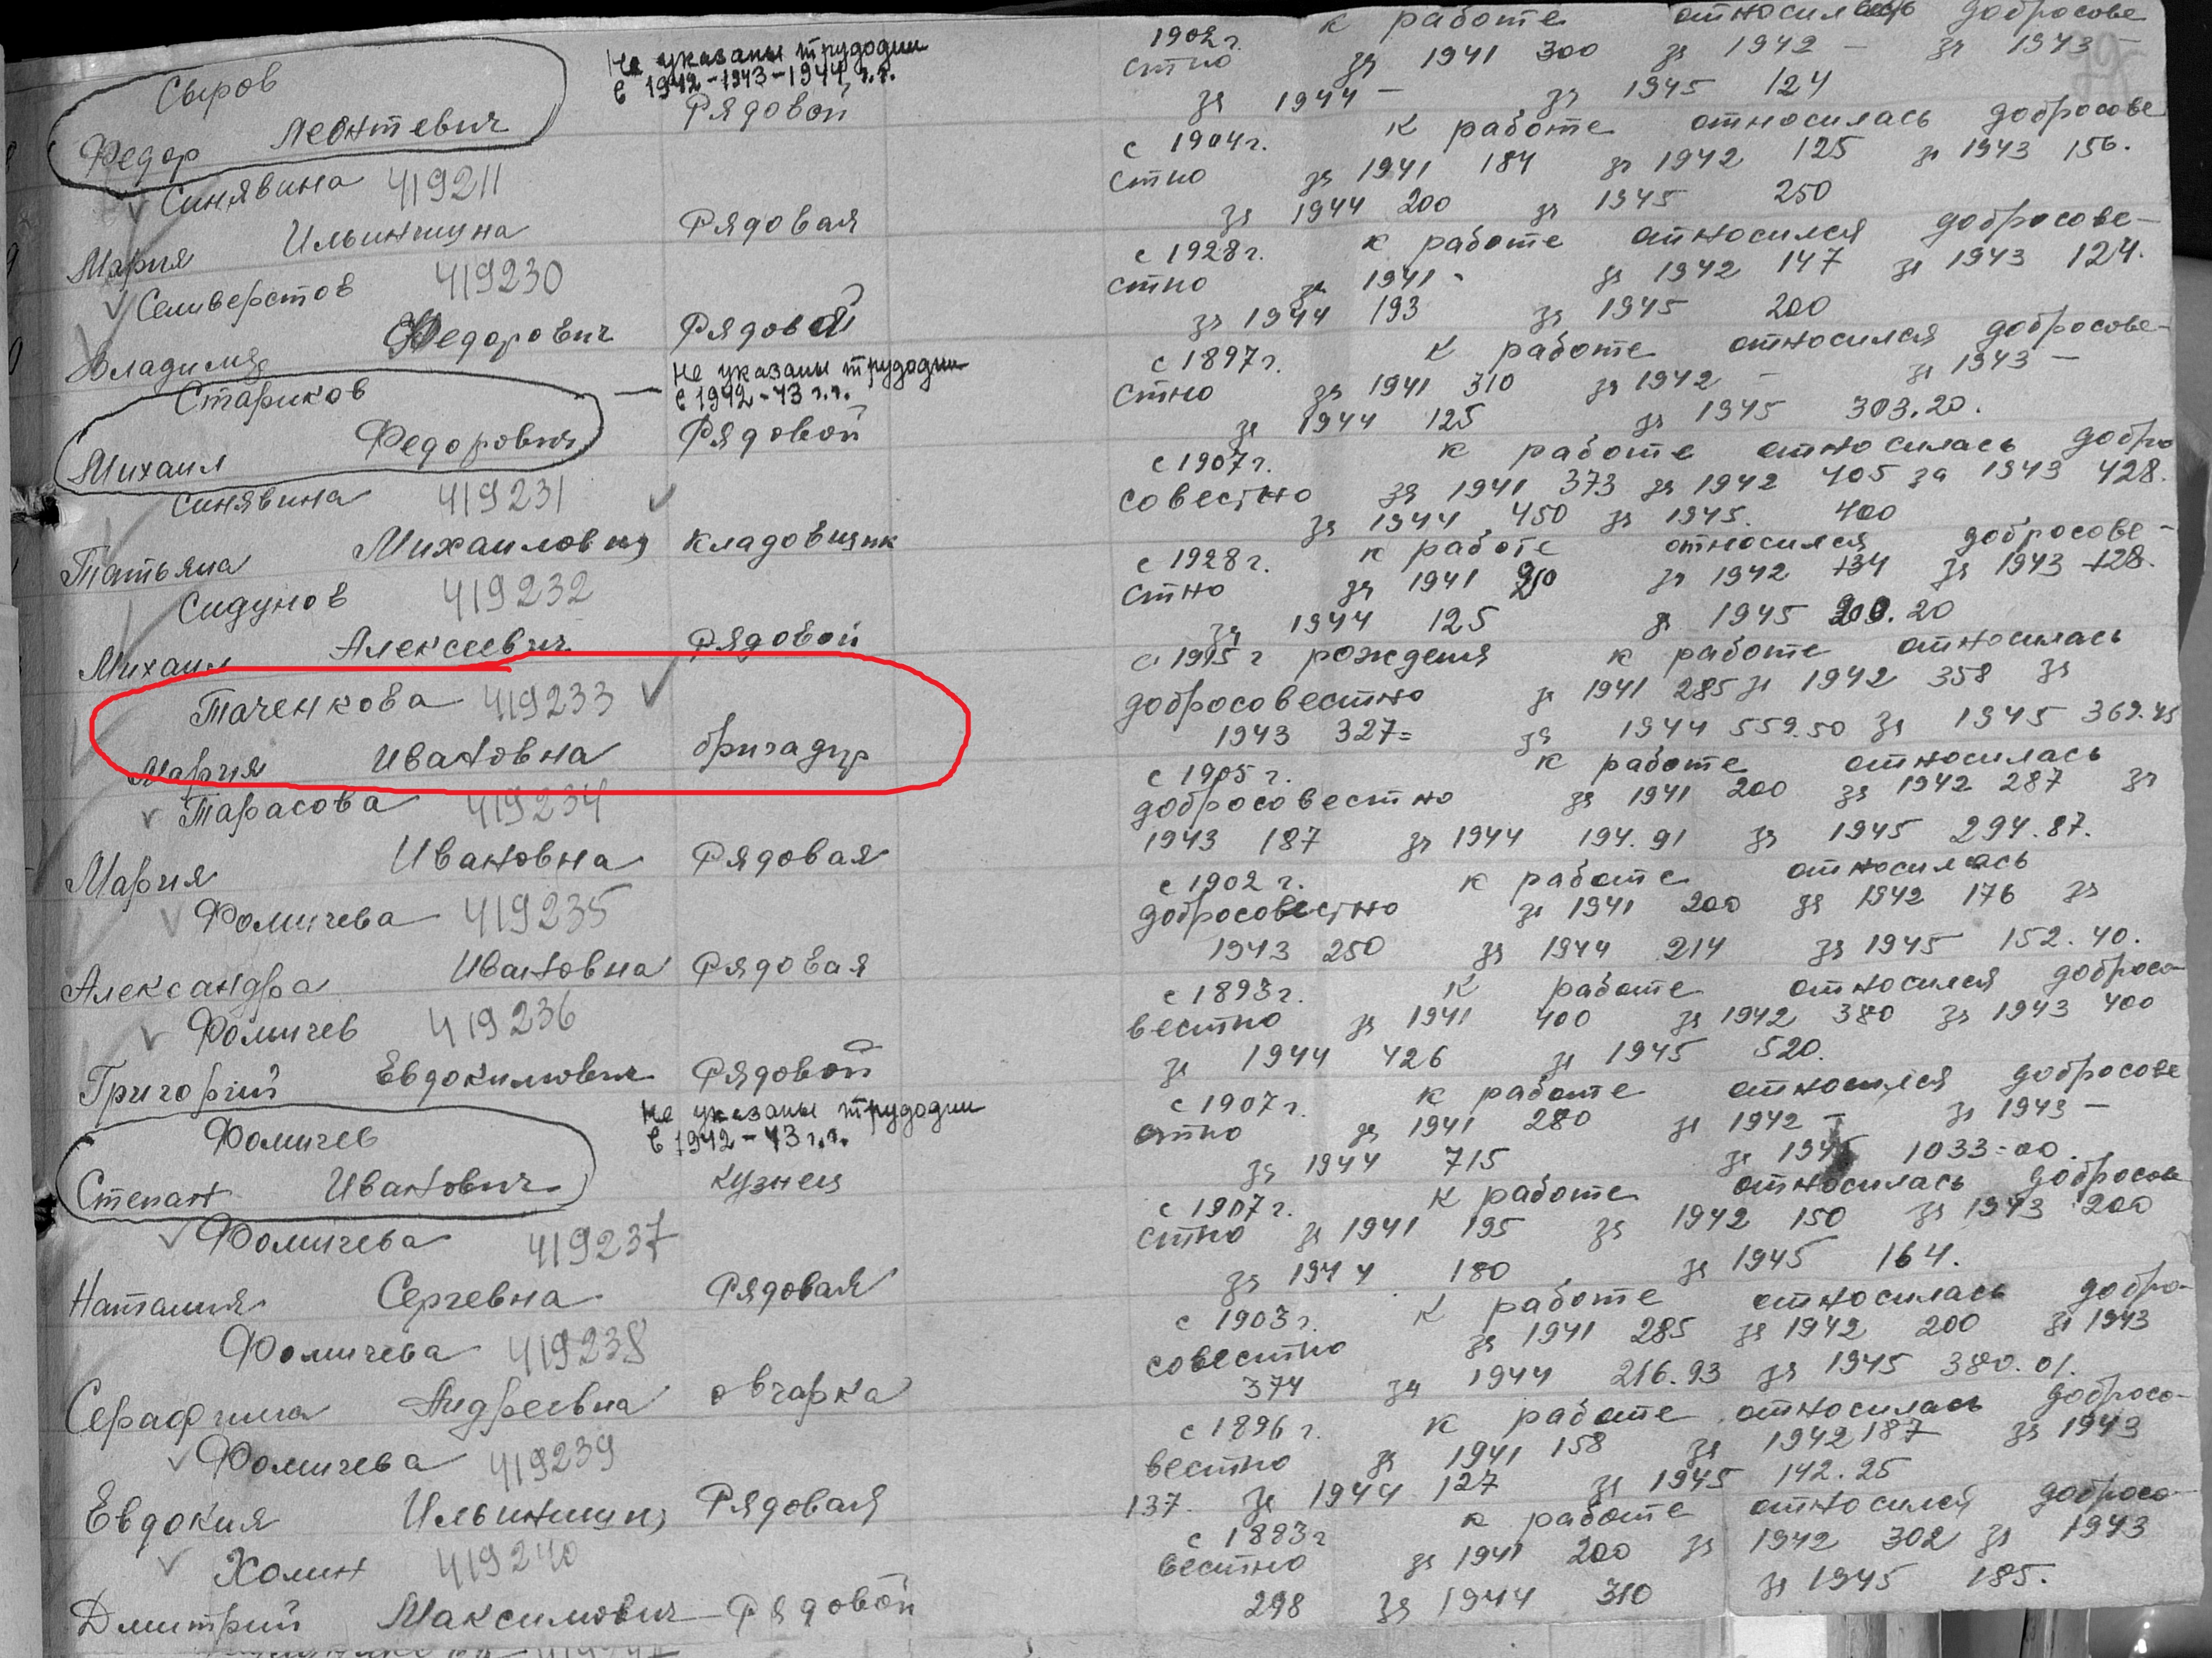 Сыров
Не указаны трудодни
с 1942-1943-1944 г.г.
Федор Леонтевич Рядовой
1902 г. к работе относилась добросове
стно за 1941 300 за 1942 — за 1943 —
за 1944 — за 1945 124
Синявина 419211
Мария Ильинишна Рядовая
с 1904 г. к работе относилась добросове
стно за 1941 184 за 1942 125 за 1943 156.
за 1944 200 за 1945 250
Селиверстов 419230
Владимир Федорович Рядовой
с 1928 г. к работе относился добросове-
стно за 1941 - за 1942 147 за 1943 124.
за 1944 193 за 1945 200
Стариков
Не указаны трудодни
с 1942-43 г.г.
Михаил Федорович Рядовой
с 1897 г. к работе относился добросове-
стно за 1941 310 за 1942 — за 1943 —
за 1944 125 за 1945 303.20.
Синявина 419231
Татьяна Михаиловна кладовщик
с 1907 г. к работе относилась добро
совестно за 1941 373 за 1942 405 за 1943 428.
за 1944 450 за 1945. 400
Сидунов 419232
Михаил Алексеевич Рядовой
с 1928 г. к работе относился добросове-
стно за 1941 за 1942 134 за 1943 128.
за 1944 125 за 1945
Таченкова 419233
Мария Ивановна бригадир
с 1915 г рождения к работе относилась
добросовестно за 1941 285 за 1942 358 за
1943 327= за 1944 559.50 за 1945 369.45
Тарасова 419234
Мария Ивановна Рядовая
с 1905 г. к работе относилась
добросовестно за 1941 200 за 1942 287 за
1943 187 за 1944 194.91 за 1945 294.87.
Фомичева 419235
Александра Ивановна Рядовая
с 1902 г. к работе относилась
добросовестно за 1941 200 за 1942 176 за
1943 250 за 1944 214 за 1945 152.40.
Фомичев 419236
Григорий Евдокимович Рядовой
с 1893 г. к работе относился добросо-
вестно за 1941 400 за 1942 380 за 1943 400
за 1944 426 за 1945 520.
Фомичев
Не указаны трудодни
с 1942-43 г.г.
Степан Иванович кузнец
с 1907 г. к работе относился добросове
стно за 1941 280 за 1942 — за 1943 —
за 1944 715 за 1945 1033=00.
Фомичева 419237
Наталия Сергевна Рядовая
с 1907 г. к работе относилась добросове
стно за 1941 195 за 1942 150 за 1943 200
за 1944 180 за 1945 164.
Фомичева 419238
Серафима Андреевна овчарка
с 1903 г. к работе относилась добро-
совестно за 1941 285 за 1942 200 за 1943
374 за 1944 216.93 за 1945 380.01.
Фомичева 419239
Евдокия Ильинишна Рядовая
с 1896 г. к работе относилась добросо-
вестно за 1941 158 за 1942 187 за 1943
137. за 1944 127 за 1945 142.25
Холин 419240
Дмитрий Максимович Рядовой
с 1883 г к работе относился добросо-
вестно за 1941 200 за 1942 302 за 1943
298 за 1944 310 за 1945 185.